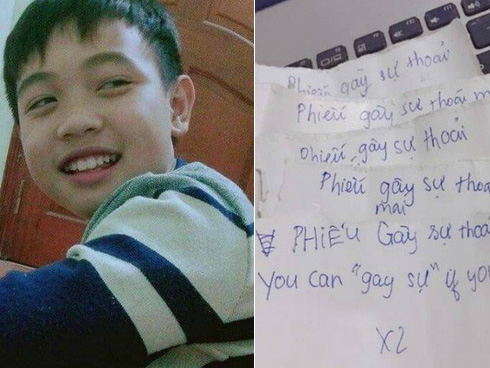 Phiếu gây sự thoải
Phiếu gây sự thoải mái
Phiếu gây sự thoải
Phiếu gây sự thoả
mái
PHIẾU Gây sự thoả
You can "gây sự" if you
X2